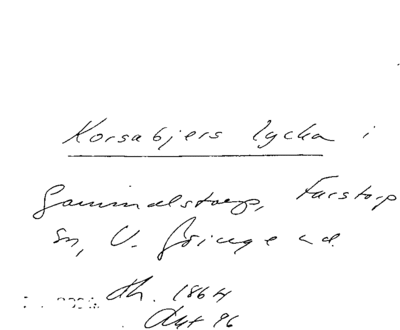 Korsabjers lycka i
Gammalstorp, Farstorp
sn, V. Göinge hd.
Ah. 1864
Avt 96